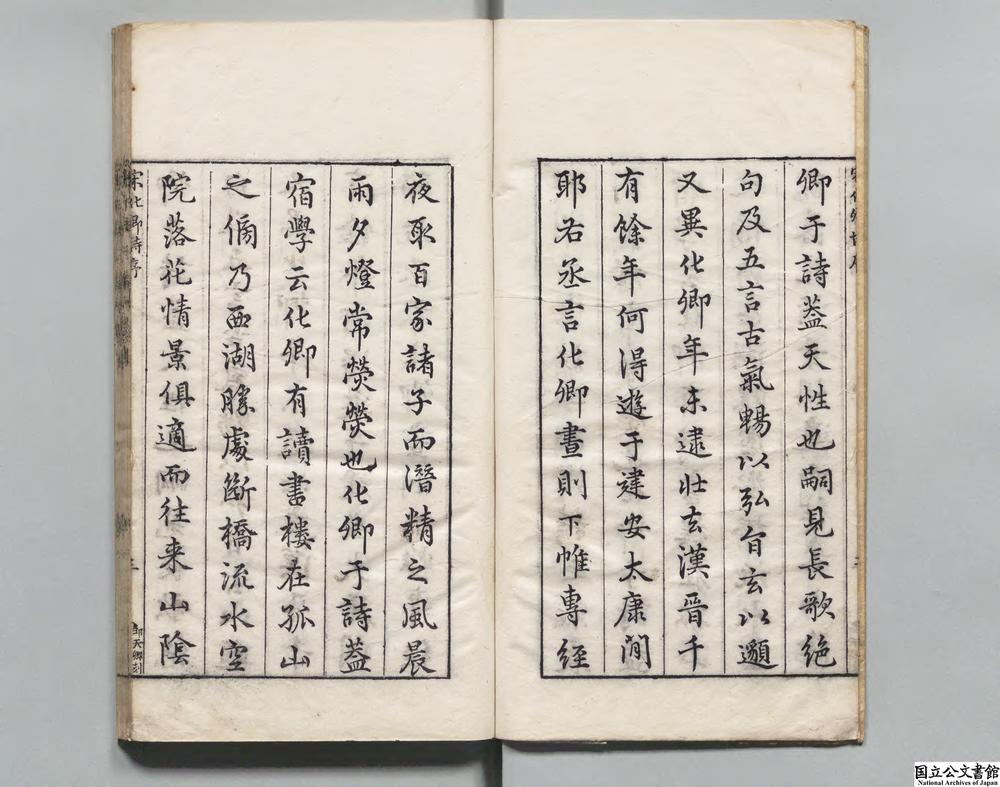 卿于詩葢天性也嗣見長歌絶
句及五言古氣暢以弘旨玄以邈
又異化卿年未逮壮去漢晋千
有餘年何得遊于建安太康間
耶右丞言化卿晝則下帷専経
夜取百家諸子而潛精之風晨
雨夕燈常熒熒也化卿于詩葢
宿學云化卿有讀書樓在孤山
之側乃西湖勝處斷橋流水空
院落花情景俱適而往来山陰
宋化卿詩序
三
鄒天卿刻
国立公文書館
National Archives of Japan